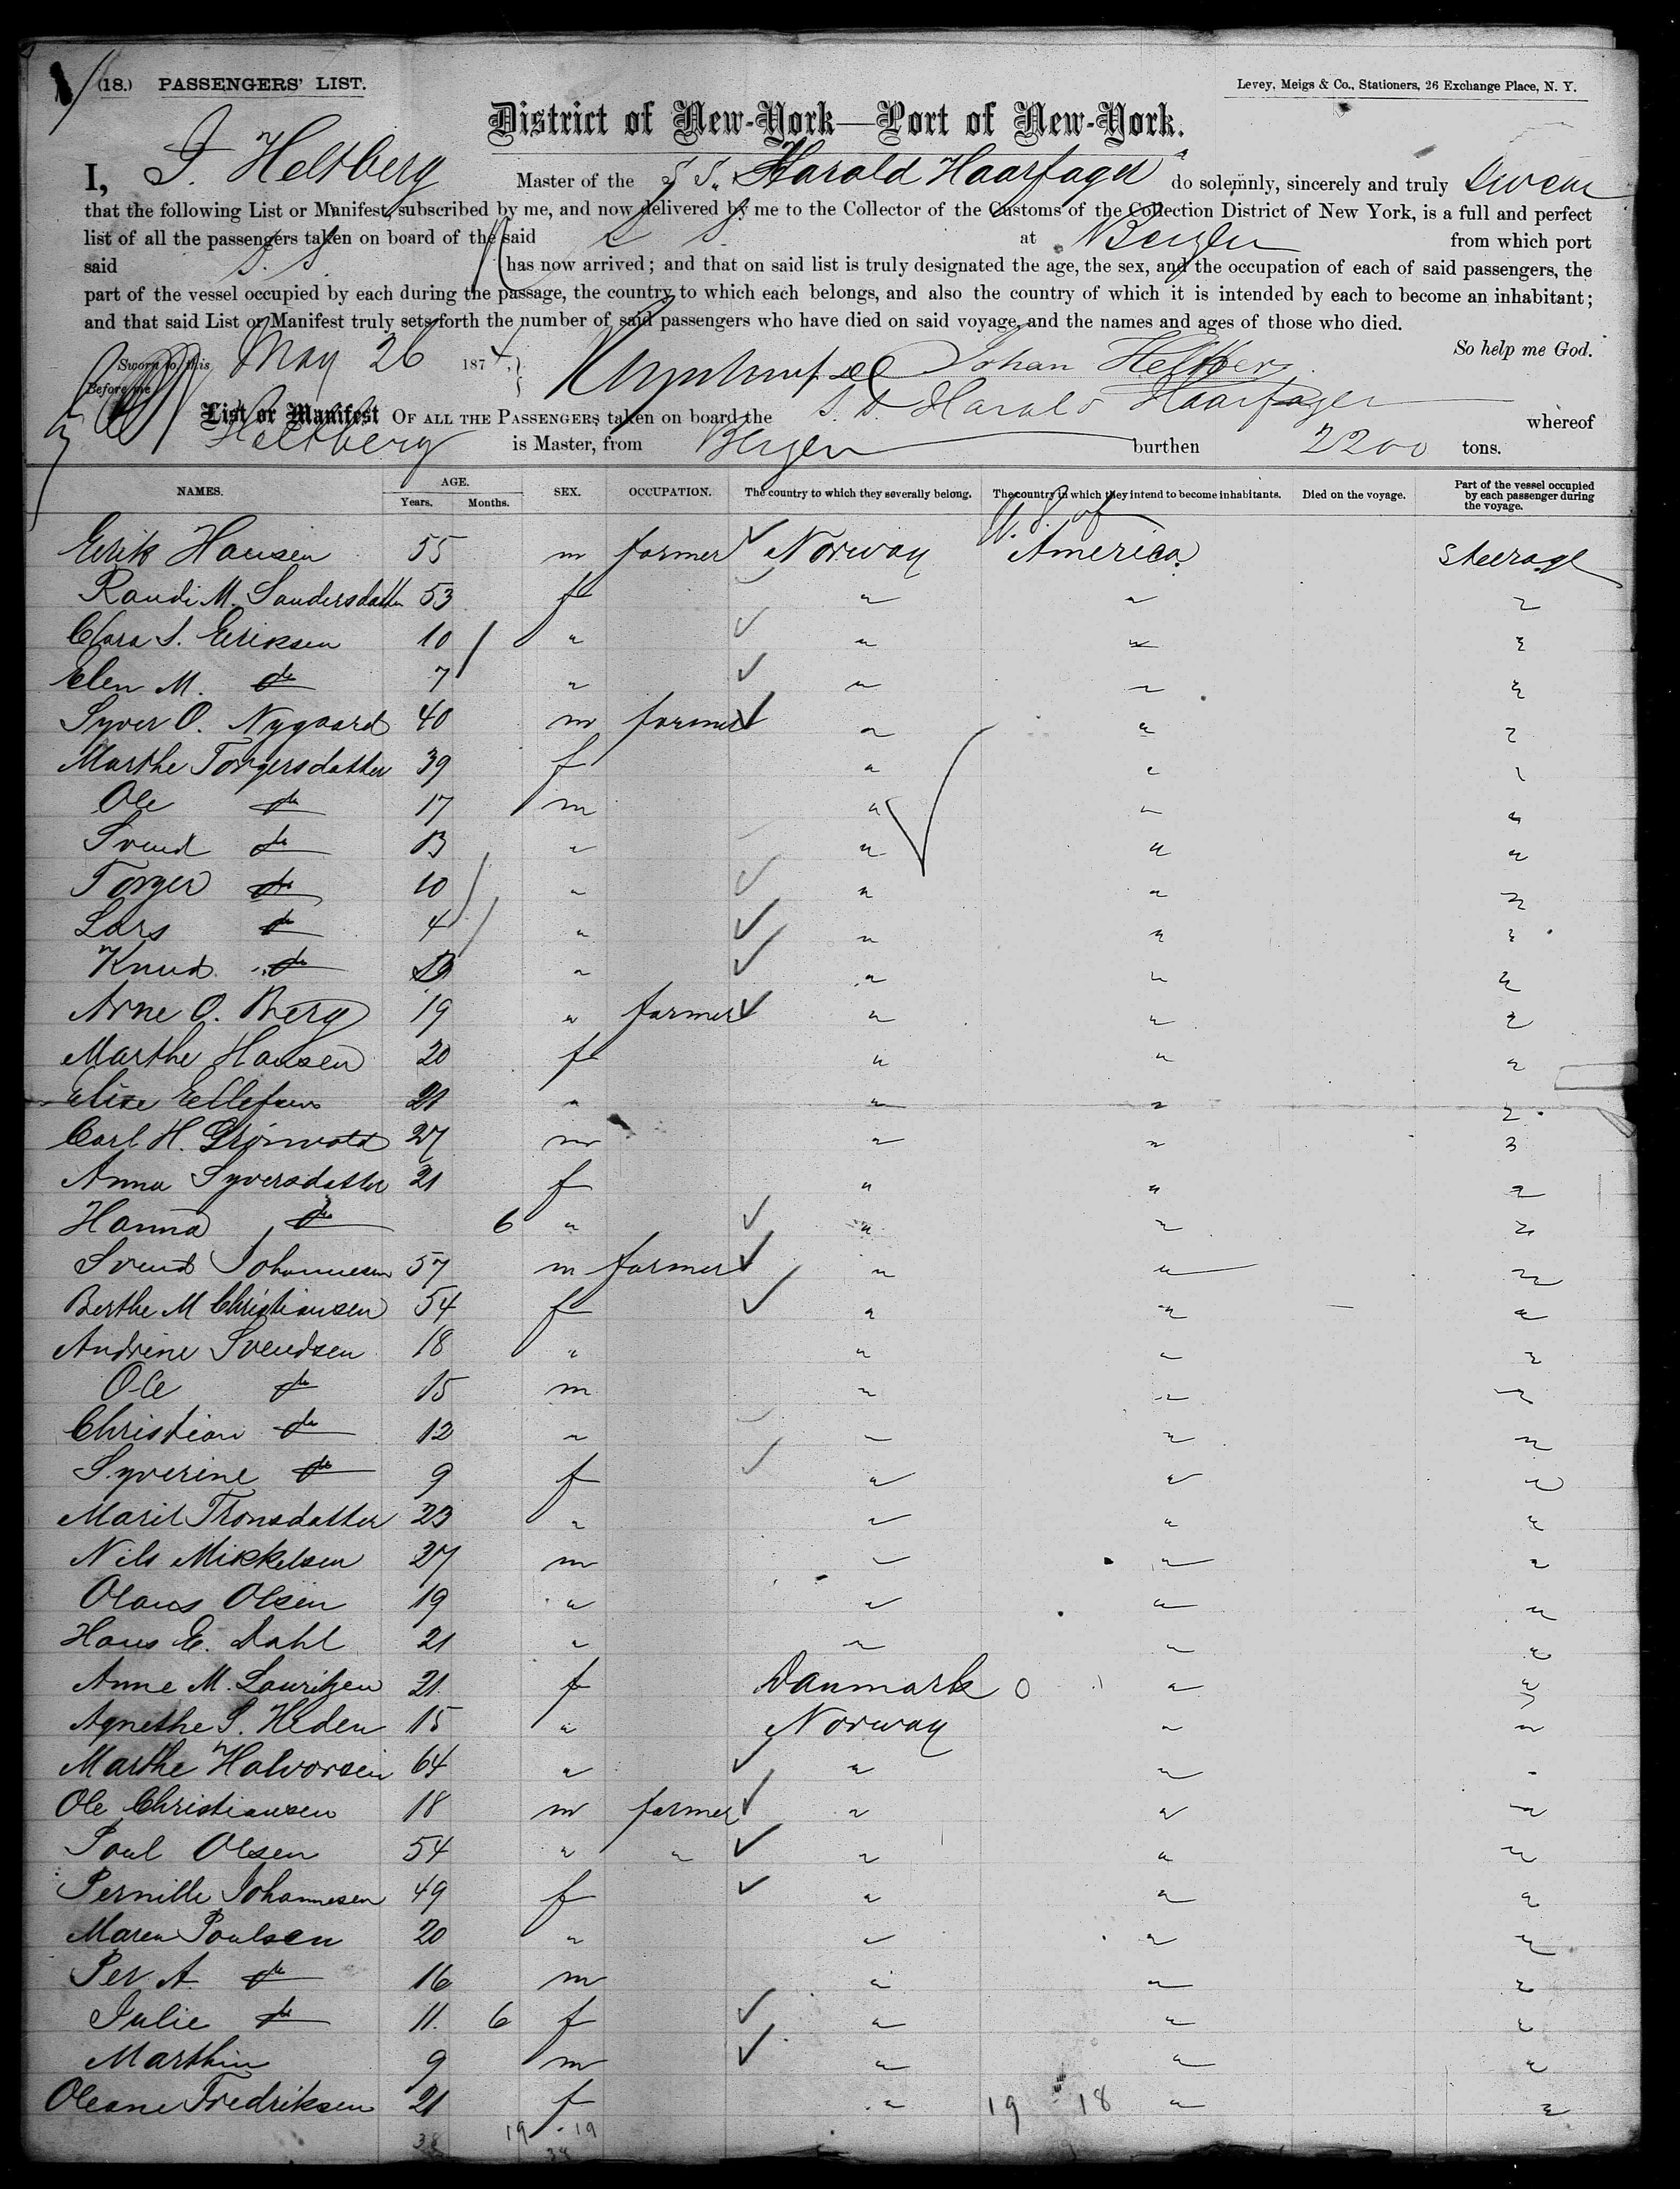 (18.) PASSENGERS' LIST.
Levey, Meigs & Co., Stationers, 26 Exchange Place, N. Y.
District of New-York—Port of New-York.
I, J. Heltberg Master of the S. S. Harald Haarfager do solemnly, sincerely and truly swear
that the following List or Manifest, subscribed by me, and now delivered by me to the Collector of the Customs of the Collection District of New York, is a full and perfect
list of all the passengers taken on board of the said S. S. at Bergen from which port
said S. S. has now arrived; and that on said list is truly designated the age, the sex, and the occupation of each of said passengers, the
part of the vessel occupied by each during the passage, the country to which each belongs, and also the country of which it is intended by each to become an inhabitant;
and that said List or Manifest truly sets forth the number of said passengers who have died on said voyage, and the names and ages of those who died.
So help me God.
Sworn to, this May 26 1874, Johan Heltberg
Before me
List or Manifest OF ALL THE PASSENGERS taken on board the S. S. Harald Haarfager whereof
Heltberg is Master, from Bergen burthen 2200 tons.
NAMES. AGE. Years. Months. SEX. OCCUPATION. The country to which they severally belong. The country in which they intend to become inhabitants. Died on the voyage. Part of the vessel occupied by each passenger during the voyage.
Eerik Hansen 55 m farmer Norway U. S. of America. Steerage
Randi M. Sandersdatter 53 f " " "
Clara S. Eeriksen 10 " " " "
Elen M. do 7 " " " "
Syver O. Nygaard 40 m farmer " " "
Marthe Torgersdatter 39 f " " "
Ole do 17 m " " "
Svend do 13 " " " "
Torger do 10 " " " "
Lars do 4 " " " "
Knud do " " " "
Arne O. Berg 19 " farmer " " "
Marthe Hansen 20 f " " "
Elise Ellefsen 21 " " " "
Carl H. Grönvold 27 m " " "
Anna Syversdatter 21 f " " "
Hanna do 6 " " " "
Svend Johannesen 57 m farmer " " "
Berthe M Christiansen 54 f " " "
Andrine Svendsen 18 " " " "
Ole do 15 m " " "
Christian do 12 " " " "
Syverine do 9 f " " "
Marit Tronsdatter 23 " " " "
Nils Mikkelsen 27 m " " "
Olaus Olsen 19 " " " "
Hans E. Dahl 21 " " " "
Anne M. Lauritzen 21 f Danmark " "
Agnethe S. Heden 15 " Norway " "
Marthe Halvorsen 64 " " " "
Ole Christiansen 18 m farmer " " "
Poul Olsen 54 " " " " "
Pernille Johannesen 49 f " " "
Maren Poulsen 20 " " " "
Per A. do 16 m " " "
Julie do 11. 6 f " " "
Marthin 9 m " " "
Oleane Fredriksen 21 f " " "
19 - 18
19 - 19
38 38